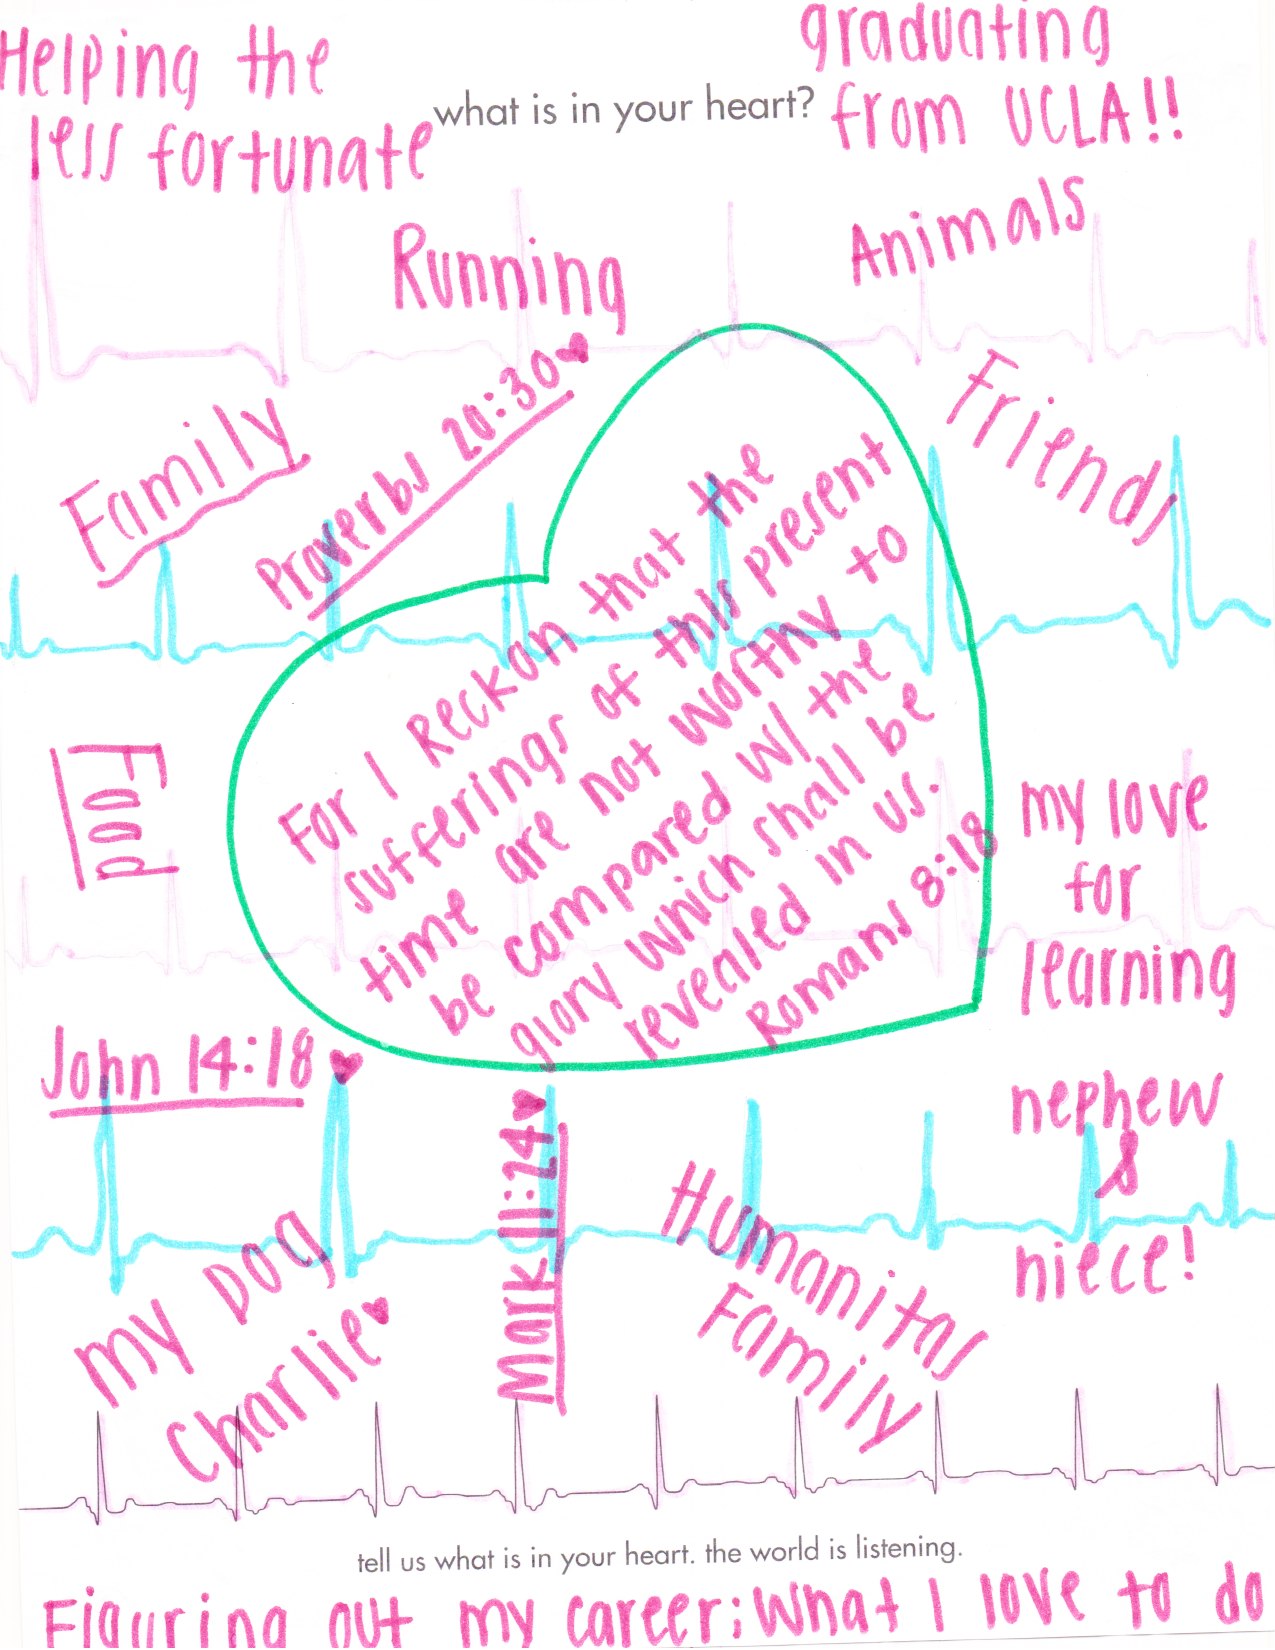 Helping the
less fortunate
what is in your heart?
graduating
from UCLA!!
Running
Animals
Family
Proverbs 20:30
Friends
For I Reckon that the
sufferings of this present
time are not worthy to
be compared w/ the
glory which shall be
revealed in us.
Romans 8:18
Food
my love
for
learning
John 14:18
Mark 11:24
nephew
&
niece!
My Dog
Charlie
Humanitas
Family
tell us what is in your heart. the world is listening.
Figuring out my career; What I love to do